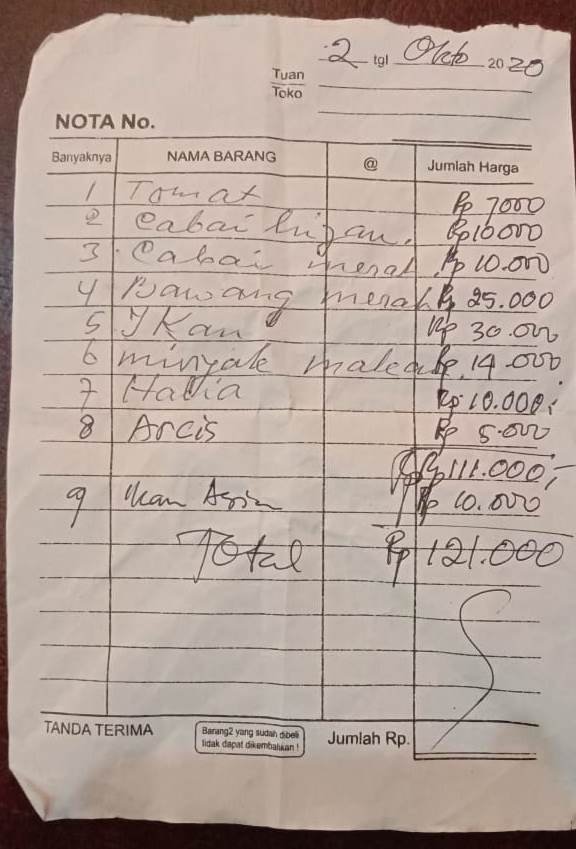 2 tgl Okto 2020
Tuan
Toko
NOTA No.
Banyaknya NAMA BARANG @ Jumlah Harga
1 Tomat Rp 7000
2 Cabai hijau. Rp 10000
3 Cabai merah Rp 10.000
4 Bawang merah Rp 25.000
5 Ikan Rp 30.000
6 minyak makan Rp. 14.000
7 Halia Rp 10.000;
8 Arcis Rp 5.000
Rp 111.000,-
9 Ikan Asin Rp 10.000
Total Rp 121.000
TANDA TERIMA
Barang2 yang sudah dibeli
tidak dapat dikembalikan !
Jumlah Rp.